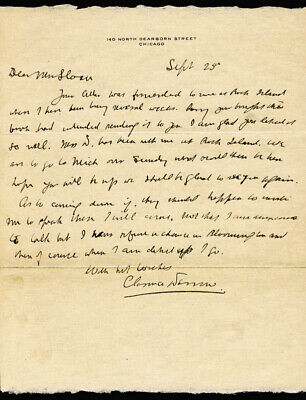 140 NORTH DEARBORN STREET
CHICAGO
Sept 25th
Dear Mr Sloan
Your letter was forwarded to me at Rock Island
where I have been busy several weeks. Sorry you bought the
book had intended sending it to you I am glad you liked it
so well. Mrs D. has been with me at Rock Island. We
are to go to Mich over Sunday next then be here
hope you will be up or shall be glad to see you again.
As to coming down if they happen to want
me to speak there I will come. Not that I am anxious
to talk but I have a chance in Bloomington and
then of course when I am asked I go.
With best wishes
Clarence Darrow